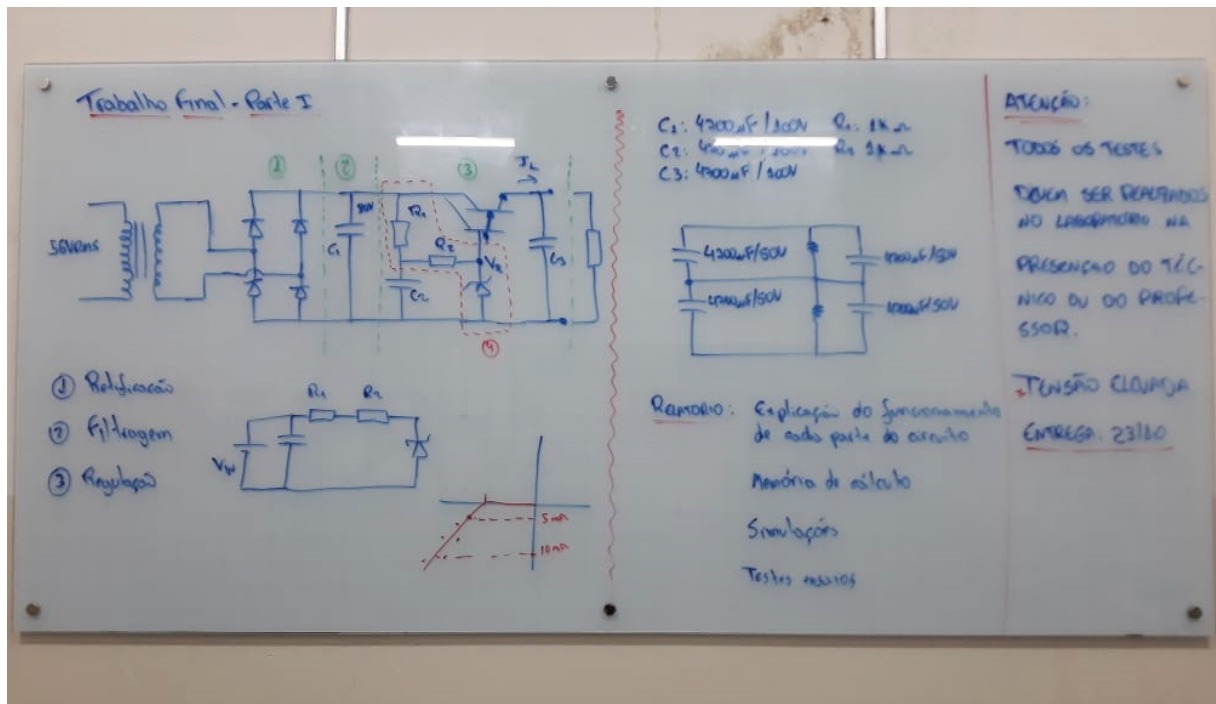 Trabalho Final - Parte I
① ② ③
56VRms
80V
C1
R1
R2
C2
Vz
IL
C3
④
① Retificação
② Filtragem
③ Regulação
R1 R2
VIN
5mA
10mA
C1: 4700uF/100V R1: 1KΩ
C2: 4700uF/100V R2 1KΩ
C3: 4700uF/100V
4700uF/50V 4700uF/50V
4700uF/50V 4700uF/50V
RELATORIO: Explicação do funcionamento
de cada parte do circuito
Memória de cálculo
Simulações
Testes
ATENÇÃO:
TODOS OS TESTES
DEVEM SER REALIZADOS
NO LABORATÓRIO NA
PRESENÇA DO TÉC-
NICO OU DO PROFE-
SSOR.
TENSÃO ELEVADA
ENTREGA: 23/10